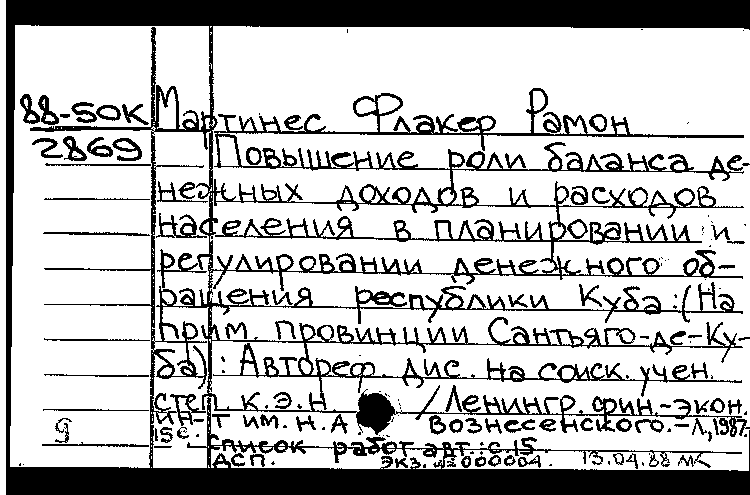 88-50К Мартинес Флакер Рамон
2869 Повышение роли баланса де-
нежных доходов и расходов
населения в планировании и
регулировании денежного об-
ращения республики Куба:(На
прим. провинции Сантьяго-де-Ку-
ба): Автореф. дис. на соиск. учен.
степ. к.э.н /Ленингр. фин.-экон.
ин-т им. Н.А. Вознесенского.-Л,1987.
9 15с.
Список работ авт.:с.15
АСП. Экз. 000004. 13.04.88 МК